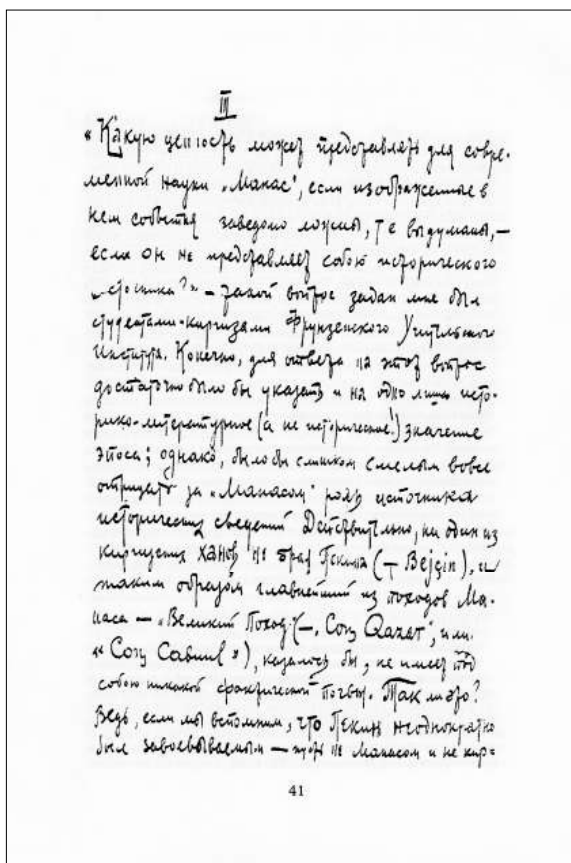 III
"Какую ценность может представлять для совре-
менной науки „Манас", если изображенные в
нем события заведомо ложны, т е выдуманы,—
если он не представляет собою исторического
источника?" – такой вопрос задан мне был
студентами-киргизами Фрунзенского Учительского
Института. Конечно, для ответа на этот вопрос
достаточно было бы указать и на одно лишь исто-
рико-литературное (а не историческое!) значение
эпоса; однако, было бы слишком смелым вовсе
отрицать за „Манасом" роль источника
исторических сведений Действительно, ни один из
киргизских ханов не брал Пекина (– Bejçin), и
таким образом главнейший из походов Ма-
наса — „Великий Поход" (–, Coŋ Qazat", или
"Coŋ Cabuul"), казалось бы, не имеет под
собою никакой фактической почвы. Так ли это?
Ведь, если мы вспомним, что Пекин неоднократно
был завоевываемым — пусть не Манасом и не кир-
41